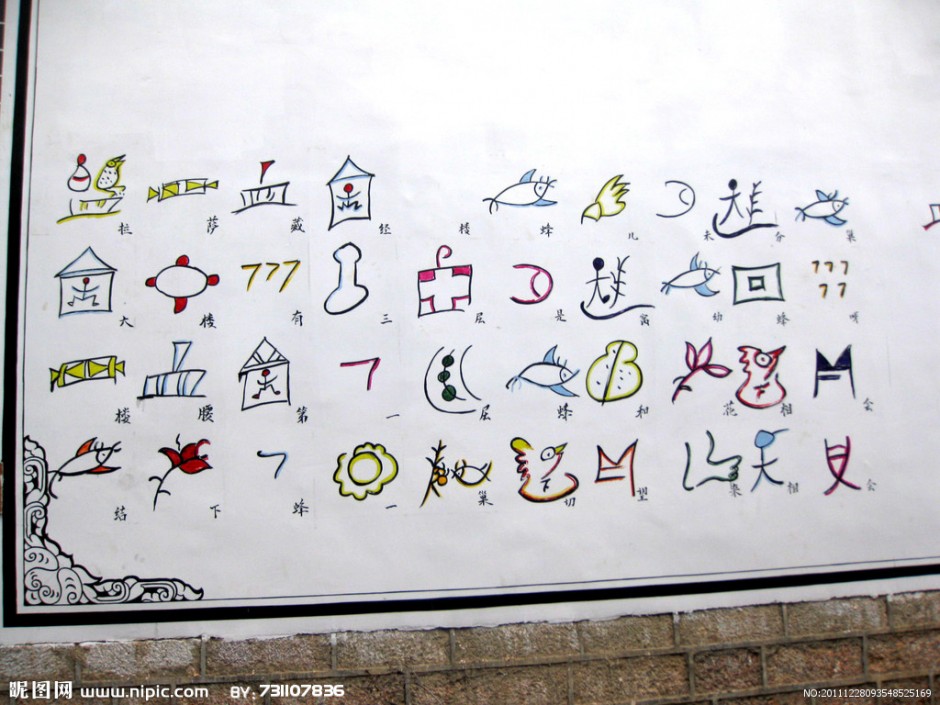 拉 萨 藏 经 楼 蜂 儿 分 巢
大 楼 有 三 层 是 蜂
楼 腰 第 一 层 蜂 和 花 相 会
结 下 蜂 一 巢 切 望 来 相 会
昵图网 www.nipic.com BY: 731107836 NO:20111228093548525169